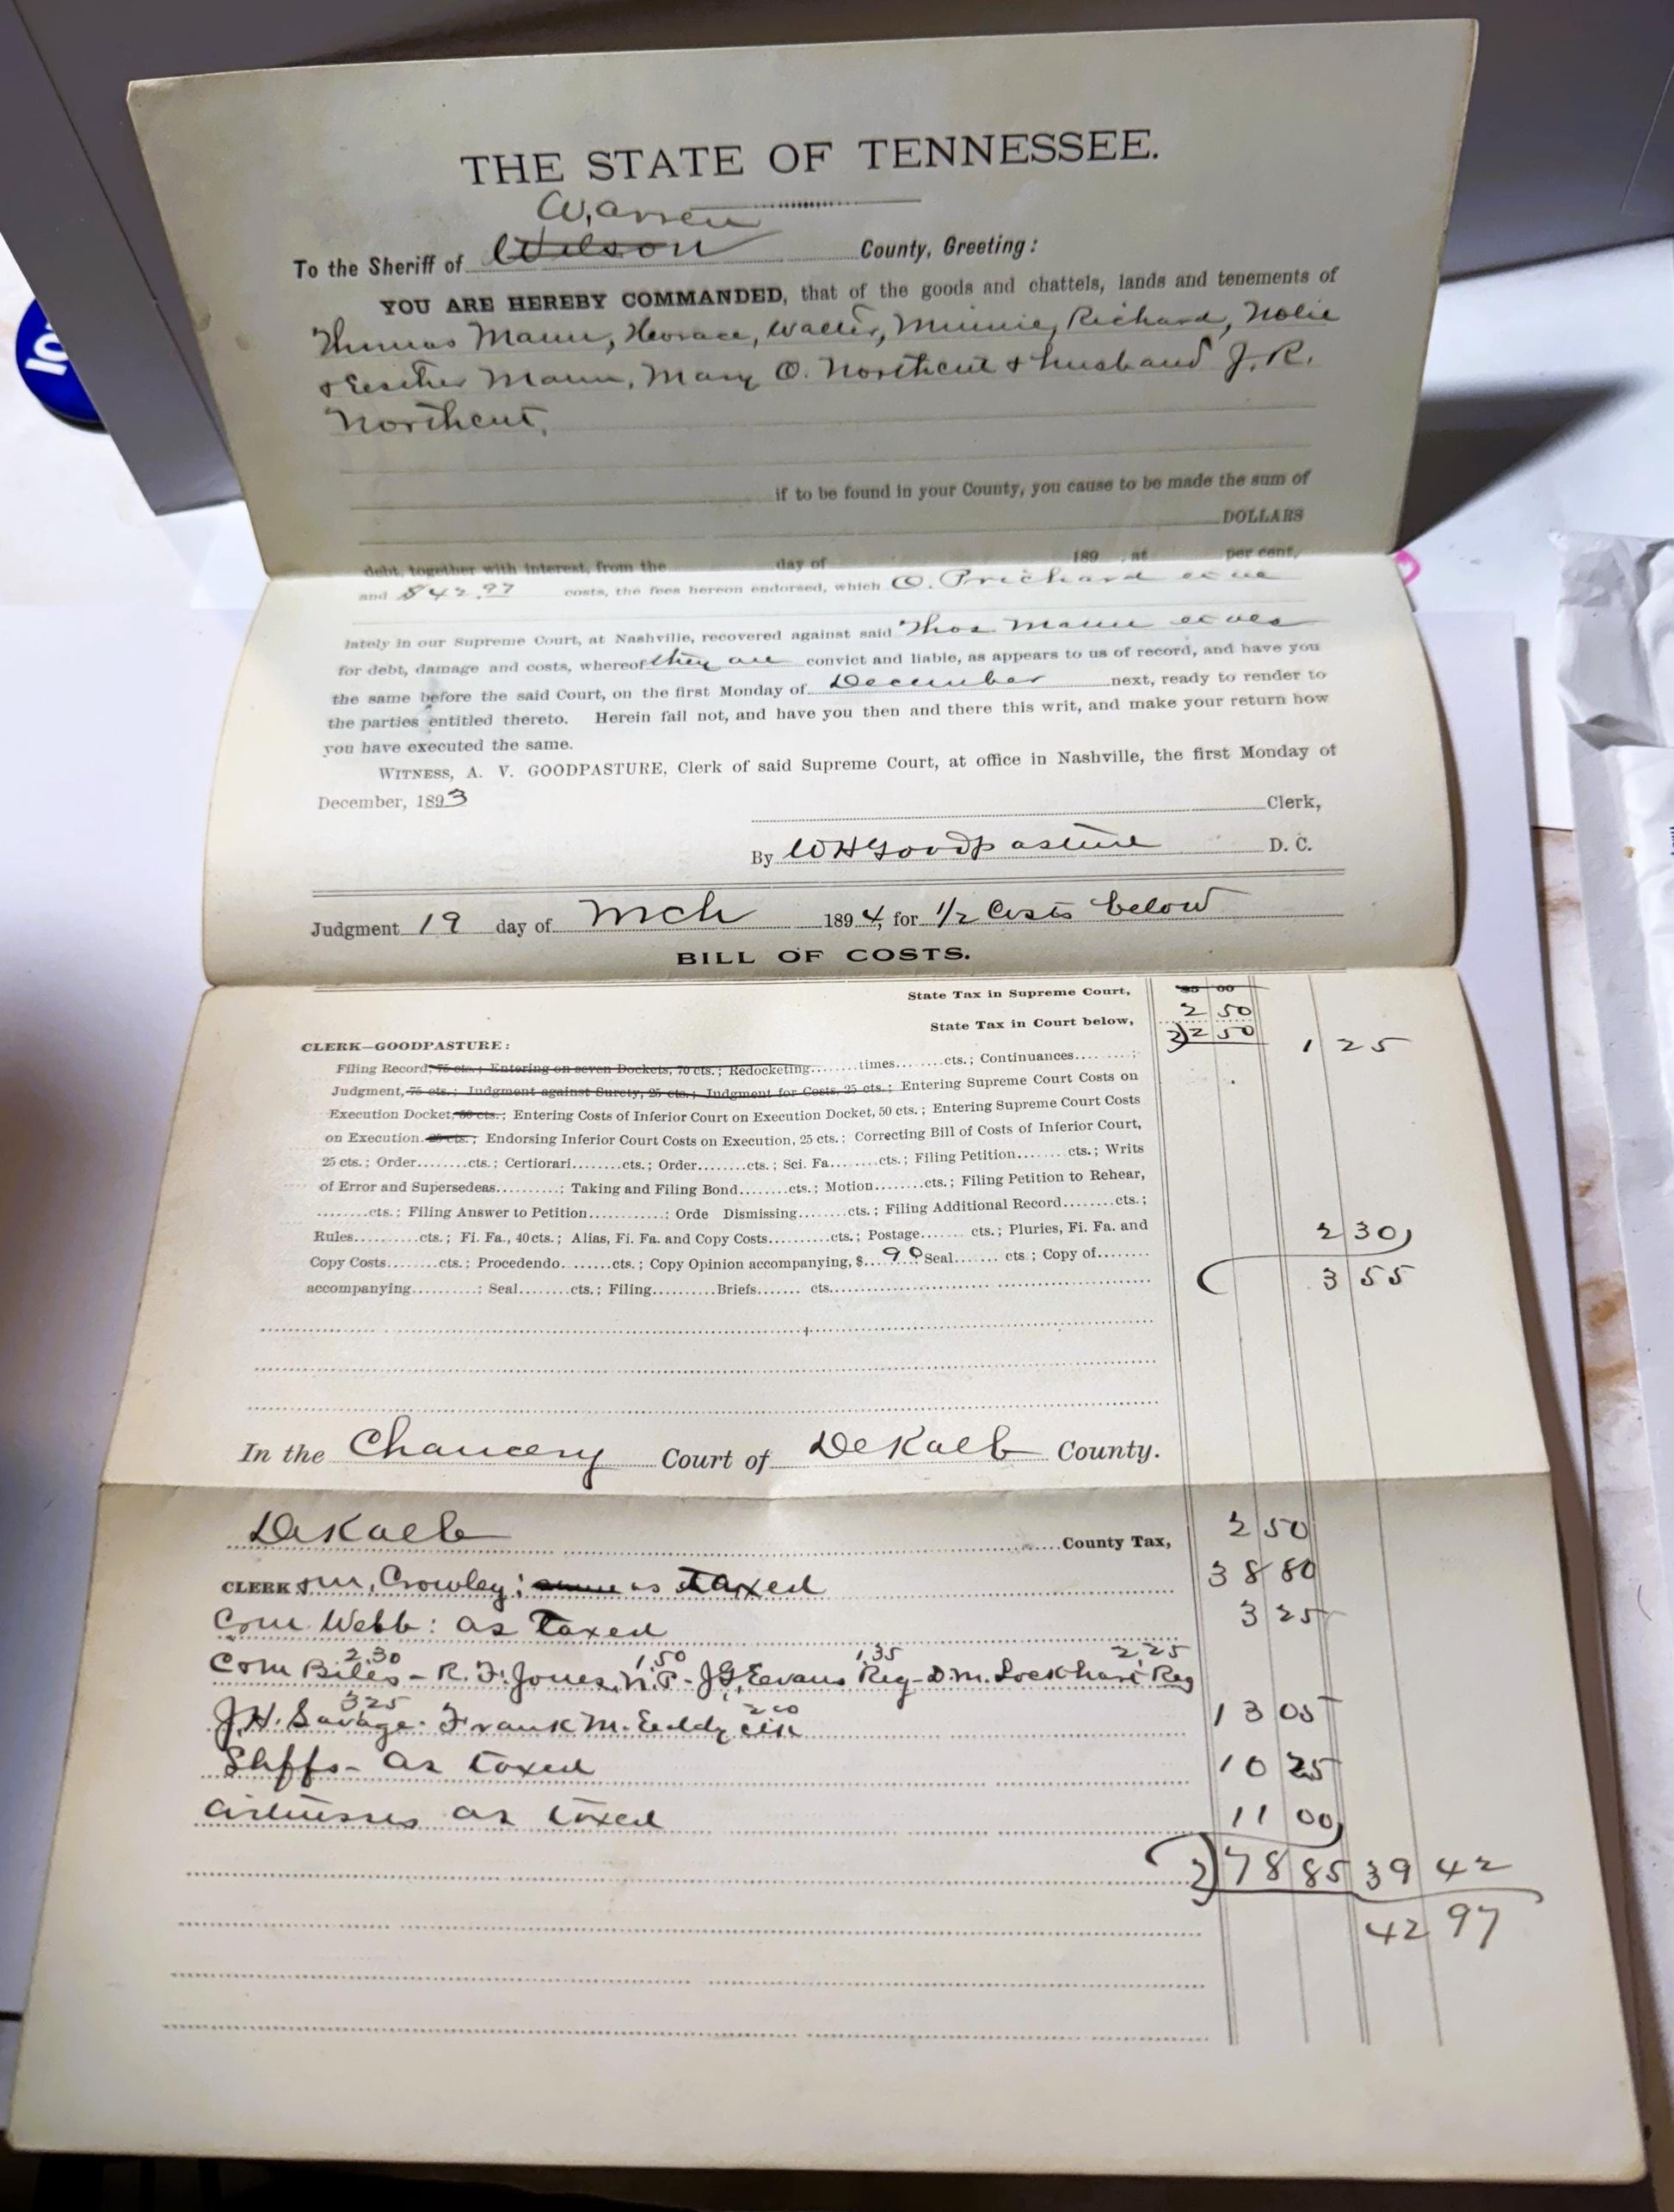 THE STATE OF TENNESSEE.
Warren
To the Sheriff of Wilson County, Greeting:
YOU ARE HEREBY COMMANDED, that of the goods and chattels, lands and tenements of
Thomas Mann, Horace, Walter, Minnie, Richard, Nolie
& Mann, Mary O. Northcut & husband J. R.
Northcut,
if to be found in your County, you cause to be made the sum of
DOLLARS
debt, together with interest, from the day of 189 , at per cent,
and $42.97 costs, the fees hereon endorsed, which O. Prichard et ux
lately in our Supreme Court, at Nashville, recovered against said Thos Mann et als
for debt, damage and costs, whereof they are convict and liable, as appears to us of record, and have you
the same before the said Court, on the first Monday of December next, ready to render to
the parties entitled thereto. Herein fail not, and have you then and there this writ, and make your return how
you have executed the same.
WITNESS, A. V. GOODPASTURE, Clerk of said Supreme Court, at office in Nashville, the first Monday of
December, 1893
Clerk,
By W H Goodpasture D. C.
Judgment 19 day of Mch 1894, for 1/2 Costs below
BILL OF COSTS.
State Tax in Supreme Court, 25 00
2 50
State Tax in Court below, 2)2 50 1 25
CLERK—GOODPASTURE:
Filing Record, 75 cts.; Entering on seven Dockets, 70 cts.; Redocketing........times........cts.; Continuances.........;
Judgment, 75 cts.; Judgment against Surety, 25 cts.; Judgment for Costs, 25 cts.; Entering Supreme Court Costs on
Execution Docket, 50 cts.; Entering Costs of Inferior Court on Execution Docket, 50 cts.; Entering Supreme Court Costs
on Execution. 25 cts.; Endorsing Inferior Court Costs on Execution, 25 cts.; Correcting Bill of Costs of Inferior Court,
25 cts.; Order........cts.; Certiorari........cts.; Order........cts.; Sci. Fa........cts.; Filing Petition....... cts.; Writs
of Error and Supersedeas..........; Taking and Filing Bond........cts.; Motion........cts.; Filing Petition to Rehear,
........cts.; Filing Answer to Petition............; Orde Dismissing........cts.; Filing Additional Record........cts.;
Rules..........cts.; Fi. Fa., 40cts.; Alias, Fi. Fa. and Copy Costs..........cts.; Postage....... cts.; Pluries, Fi. Fa. and 2 30
Copy Costs........cts.; Procedendo........cts.; Copy Opinion accompanying, $....90 Seal....... cts.; Copy of........
accompanying..........; Seal........cts.; Filing..........Briefs....... cts. 3 55
In the Chancery Court of DeKalb County.
DeKalb County Tax, 2 50
CLERK & M, Crowley; as Taxed 38 80
Com Webb: as Taxed 3 25
2.30 1.50 1.35 2.25
Com Biles - R. F. Jones, N. P. - J G, Eevans Reg - D. M. Lockhart Reg
3 25 2 00
J. H. Savage. Frank M. Eeddy clk 13 05
Shffs- as taxed 10 25
Witnesses as taxed 11 00
2)78 85 39 42
42 97